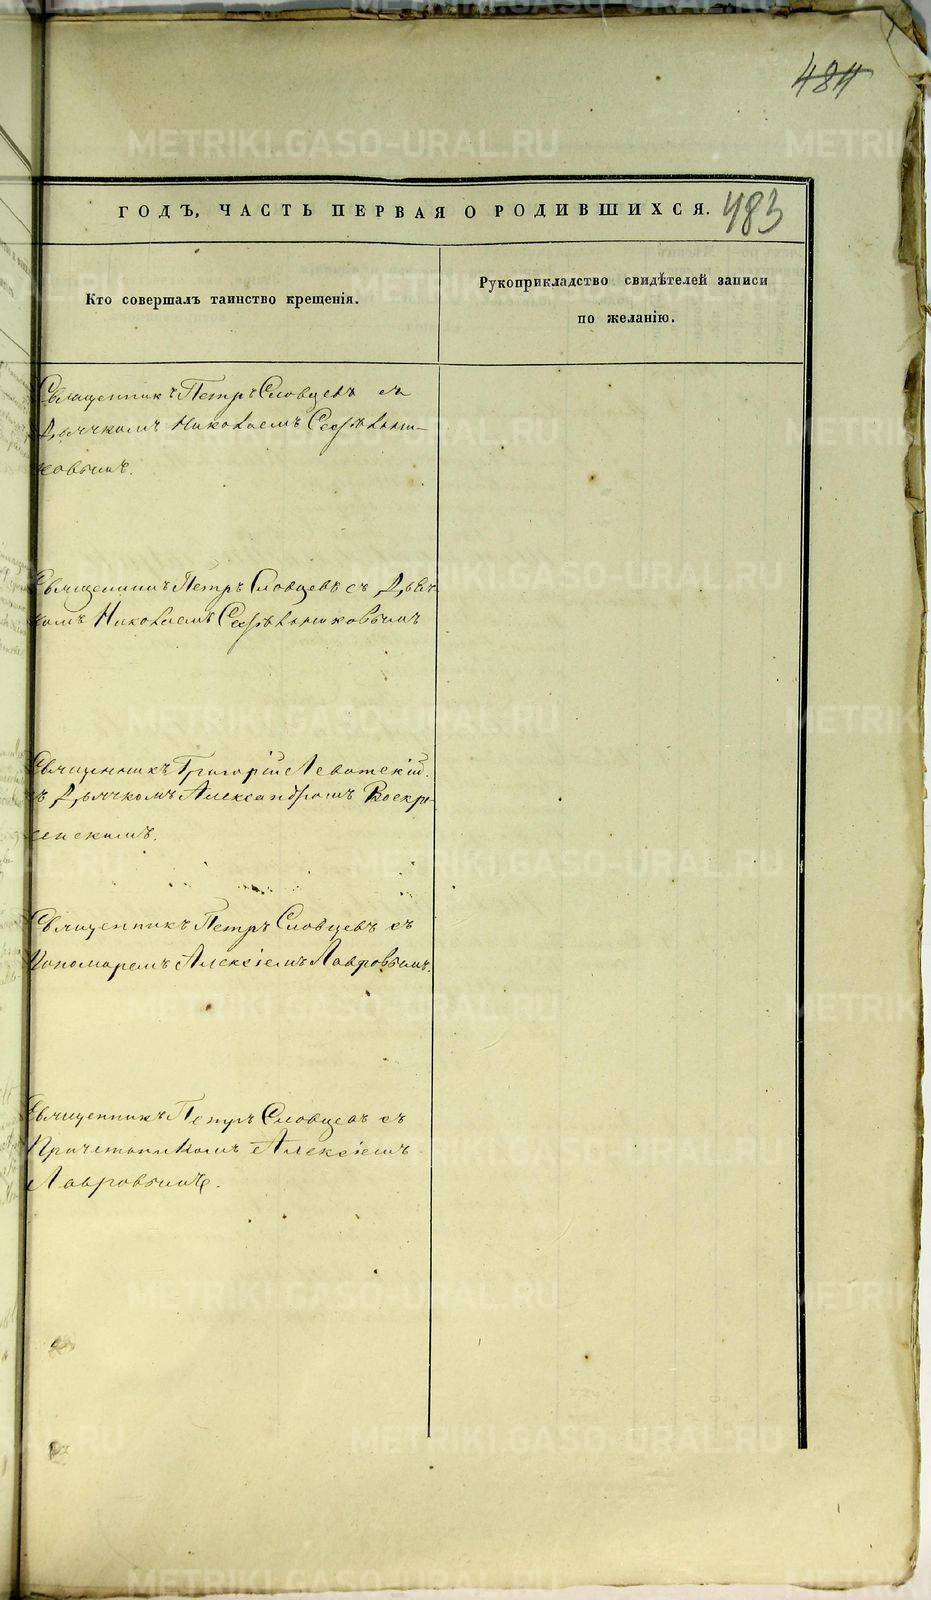 484
ГОДЪ, ЧАСТЬ ПЕРВАЯ О РОДИВШИХСЯ. 483
Кто совершалъ таинство крещенія.
Рукоприкладство свидѣтелей записи
по желанію.
Священникъ Петръ Словцевъ съ
Дьячкомъ Николаемъ
ковымъ.
Священникъ Петръ Словцевъ съ Дьяч-
комъ Николаемъ
Священникъ Григорій Левотскій
съ Дьячкомъ Александромъ Воскре-
сенскимъ.
Священникъ Петръ Словцевъ съ
Пономаремъ Алексіемъ Лавровымъ.
Священникъ Петръ Словцевъ съ
Причетникомъ Алексіемъ
Лавровымъ.
METRIKI.GASO-URAL.RU